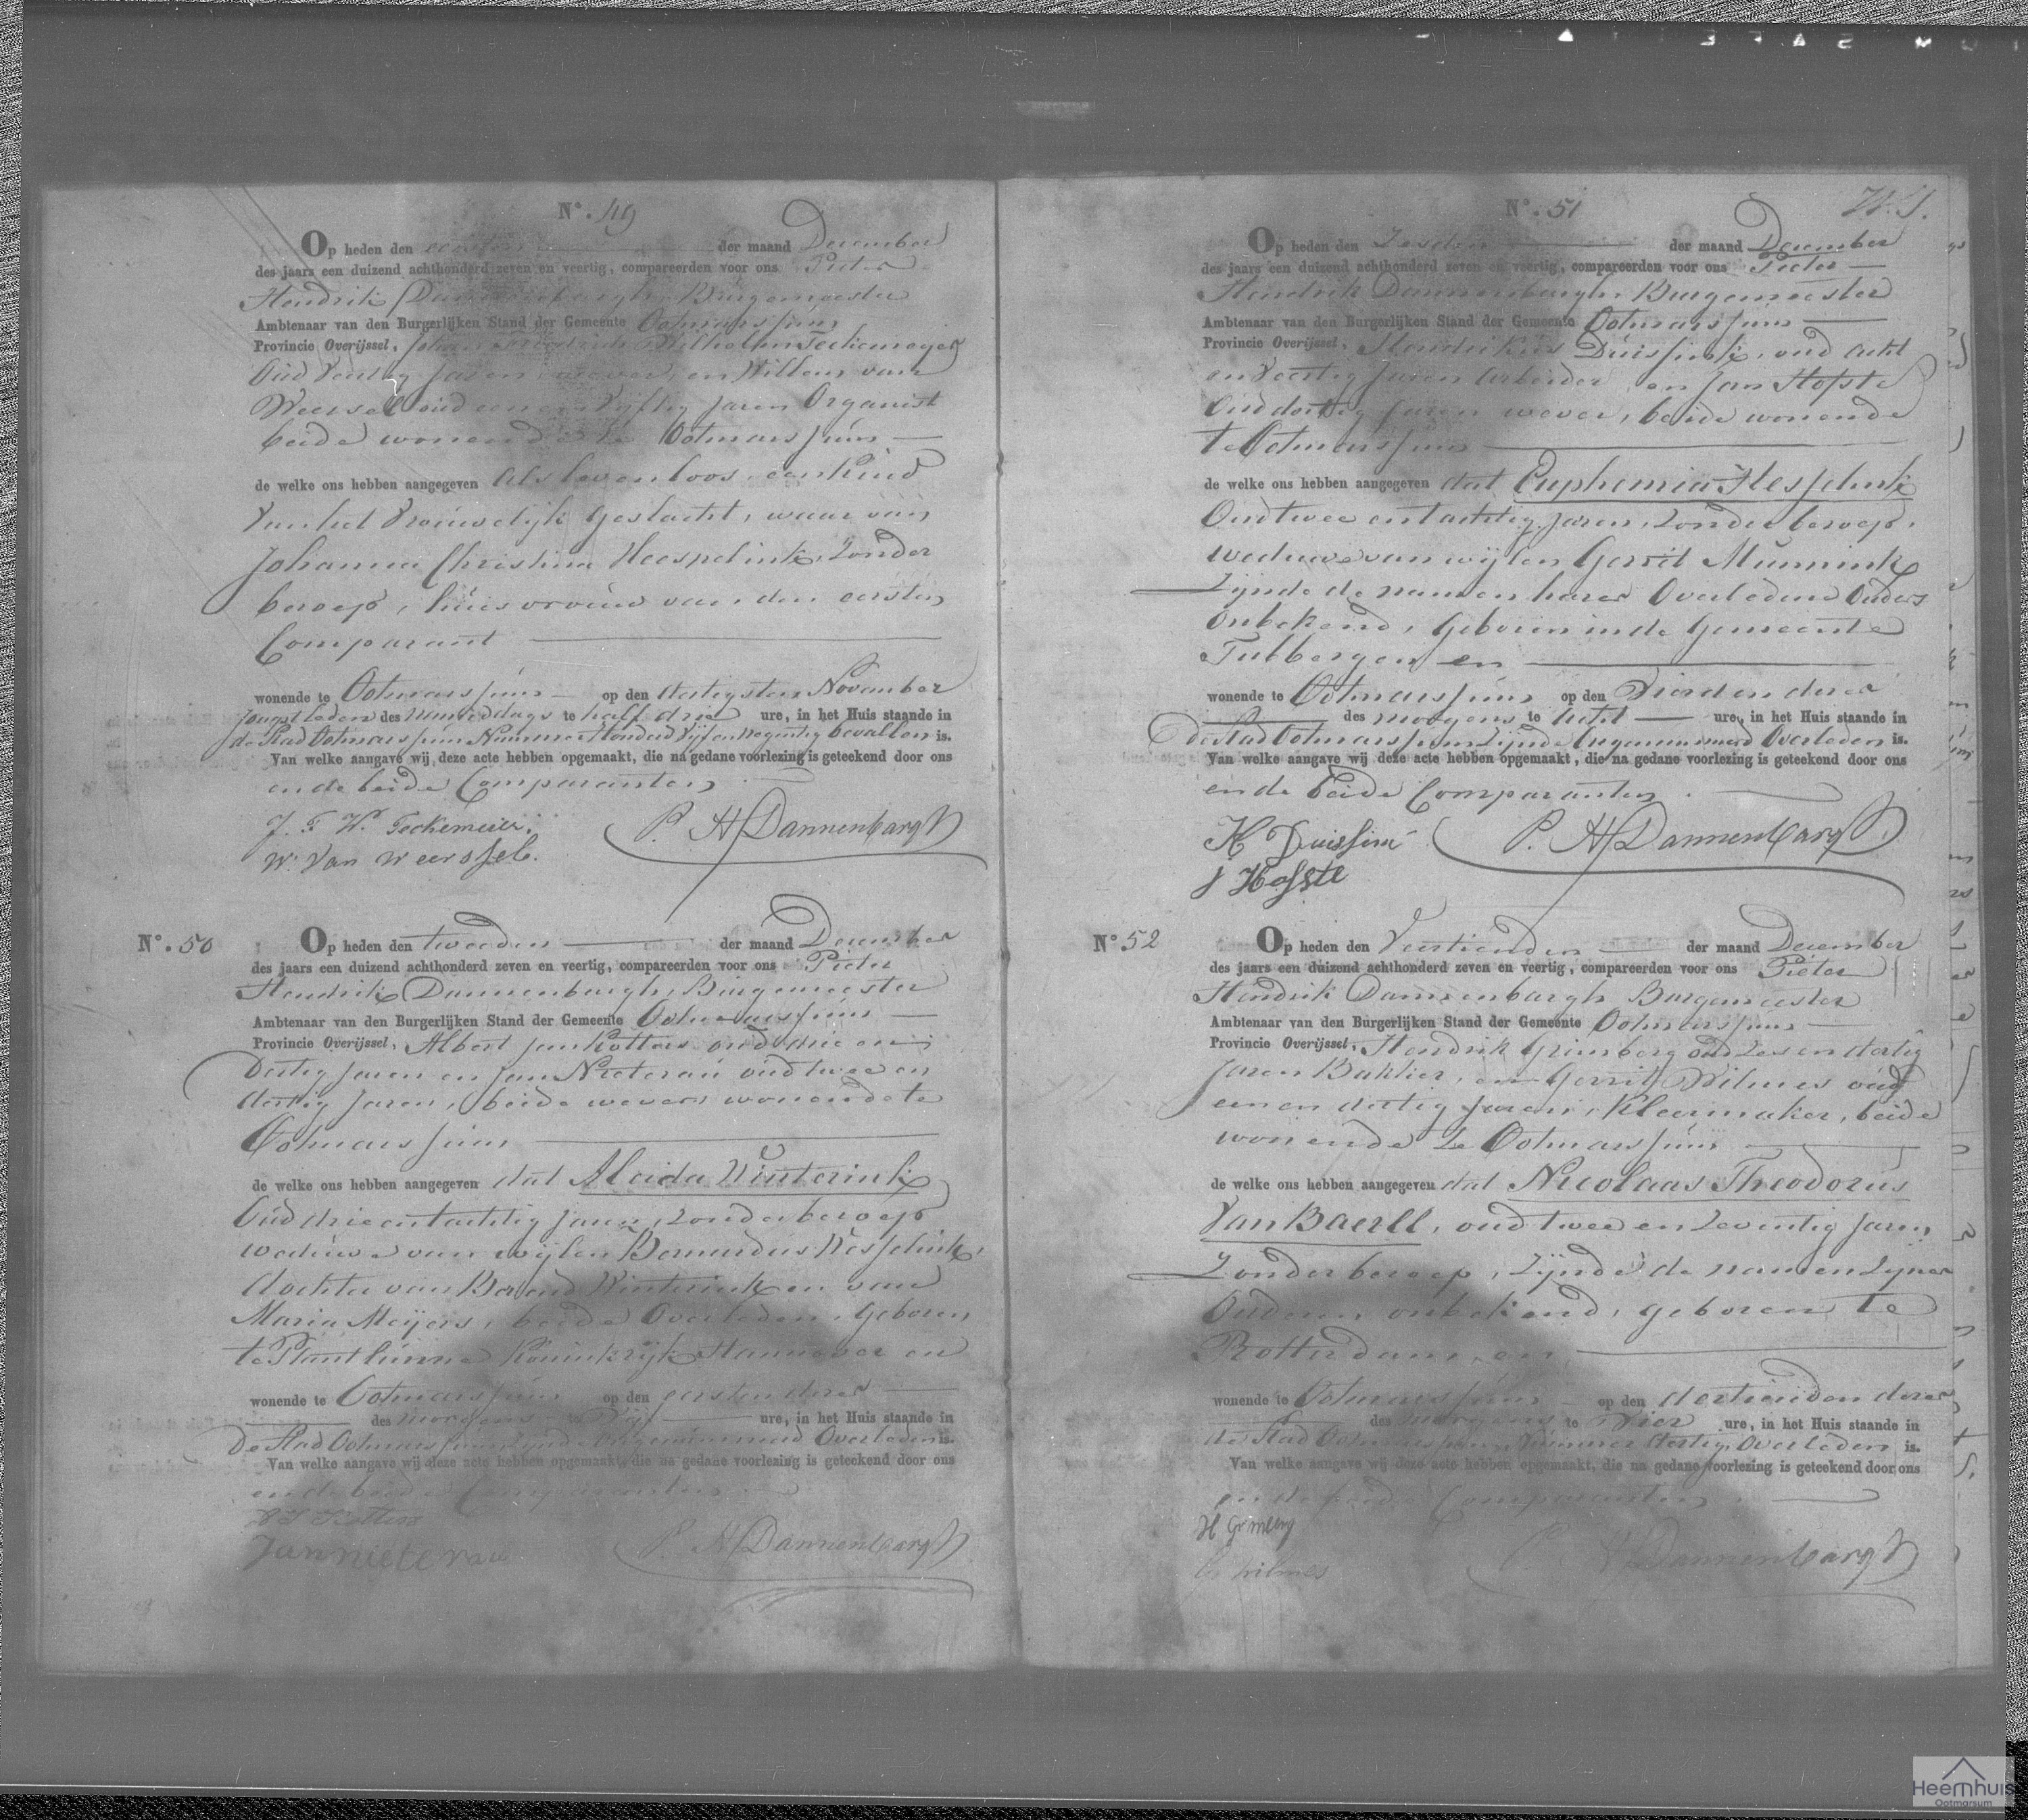 Nº. 49
Op heden den eersten der maand December
des jaars een duizend achthonderd zeven en veertig, compareerden voor ons Pieter
Hendrik Dannenbargh, Burgemeester
Ambtenaar van den Burgerlijken Stand der Gemeente Ootmarssum
Provincie Overijssel, Johan Wilhelm Teckemeyer
Oud Veertig Jaren wever, en Willem van
Weersel oud een en Vijftig Jaren Organist
beide wonende te Ootmarssum
de welke ons hebben aangegeven als levenloos een kind
van het Vrouwelijk geslacht, waar van
Johanna Christina Heespelink, Zonder
beroep, huisvrouw van den eersten
Comparant
wonende te Ootmarssum op den dertigsten November
Jongstleden des namiddags te half drie ure, in het Huis staande in
de Stad Ootmarssum Nummer Honderd Vijf en Negentig bevallen is.
Van welke aangave wij deze acte hebben opgemaakt, die na gedane voorlezing is geteekend door ons
en de beide Comparanten
J. F. W. Teckemeier
P. H. Dannenbargh
W. Van Weerssel.
Nº. 50
Op heden den tweeden der maand December
des jaars een duizend achthonderd zeven en veertig, compareerden voor ons Pieter
Hendrik Dannenbargh, Burgemeester
Ambtenaar van den Burgerlijken Stand der Gemeente Ootmarssum
Provincie Overijssel, Albert Jan Kotters oud drie en
Dertig Jaren en Jan Nieterau oud twee en
dertig Jaren, beide wevers wonende te
Ootmarssum
de welke ons hebben aangegeven dat Aleida Winterink
Oud drie en tachtig Jaren, zonder beroep
weduwe van wijlen Bernardus Hesselink,
dochter van Berend Winterink en van
Maria Meijers, beide Overleden, geboren
te Plantlünne Koninkrijk Hannover en
wonende te Ootmarssum op den eersten dezer
des morgens vijf ure, in het Huis staande in
De Stad Ootmarssum zijnde ongenummerd Overleden is.
Van welke aangave wij deze acte hebben opgemaakt, die na gedane voorlezing is geteekend door ons
en de beide Comparanten
A J Kotters
Jan nieterau
P. H. Dannenbargh
Nº. 51
Op heden den Zesden der maand December
des jaars een duizend achthonderd zeven en veertig, compareerden voor ons Pieter
Hendrik Dannenbargh, Burgemeester
Ambtenaar van den Burgerlijken Stand der Gemeente Ootmarssum
Provincie Overijssel, Hendrikus Duissink, oud acht
en Veertig Jaren Arbeider, en Jan Hofste
Oud dertig Jaren wever, beide wonende
te Ootmarssum
de welke ons hebben aangegeven dat Euphemia Hesselink
Oud twee en tachtig Jaren, Zonder beroep,
weduwe van wijlen Gerrit Munnink
Zijnde de namen harer Overledene Ouders
Onbekend, Geboren in de Gemeente
Tubbergen en
wonende te Ootmarssum op den Vierden dezer
des morgens te acht ure, in het Huis staande in
De Stad Ootmarssum zijnde Ongenummerd Overleden is.
Van welke aangave wij deze acte hebben opgemaakt, die na gedane voorlezing is geteekend door ons
en de beide Comparanten.
H Duissin
P. H. Dannenbargh
J Hofste
Nº 52
Op heden den Veertienden der maand December
des jaars een duizend achthonderd zeven en veertig, compareerden voor ons Pieter
Hendrik Dannenbargh Burgemeester
Ambtenaar van den Burgerlijken Stand der Gemeente Ootmarssum
Provincie Overijssel, Hendrik Grimberg oud Zes en dertig
Jaren Bakker, en Gerrit Wilmes oud
een en dertig Jaren, Kleermaker, beide
wonende te Ootmarssum
de welke ons hebben aangegeven dat Nicolaas Theodorus
Van Baerll, oud twee en Zeventig Jaren,
Zonder beroep, Zijnde de namen Zijner
Ouderen onbekend, geboren te
Rotterdam, en
wonende te Ootmarssum op den dertienden dezer
des morgens te Vier ure, in het Huis staande in
de Stad Ootmarssum Nummer dertig, Overleden is.
Van welke aangave wij deze acte hebben opgemaakt, die na gedane voorlezing is geteekend door ons
en de beide Comparanten
H Grimberg
P. H. Dannenbargh
G wilmes
Heemhuis
Ootmarsum